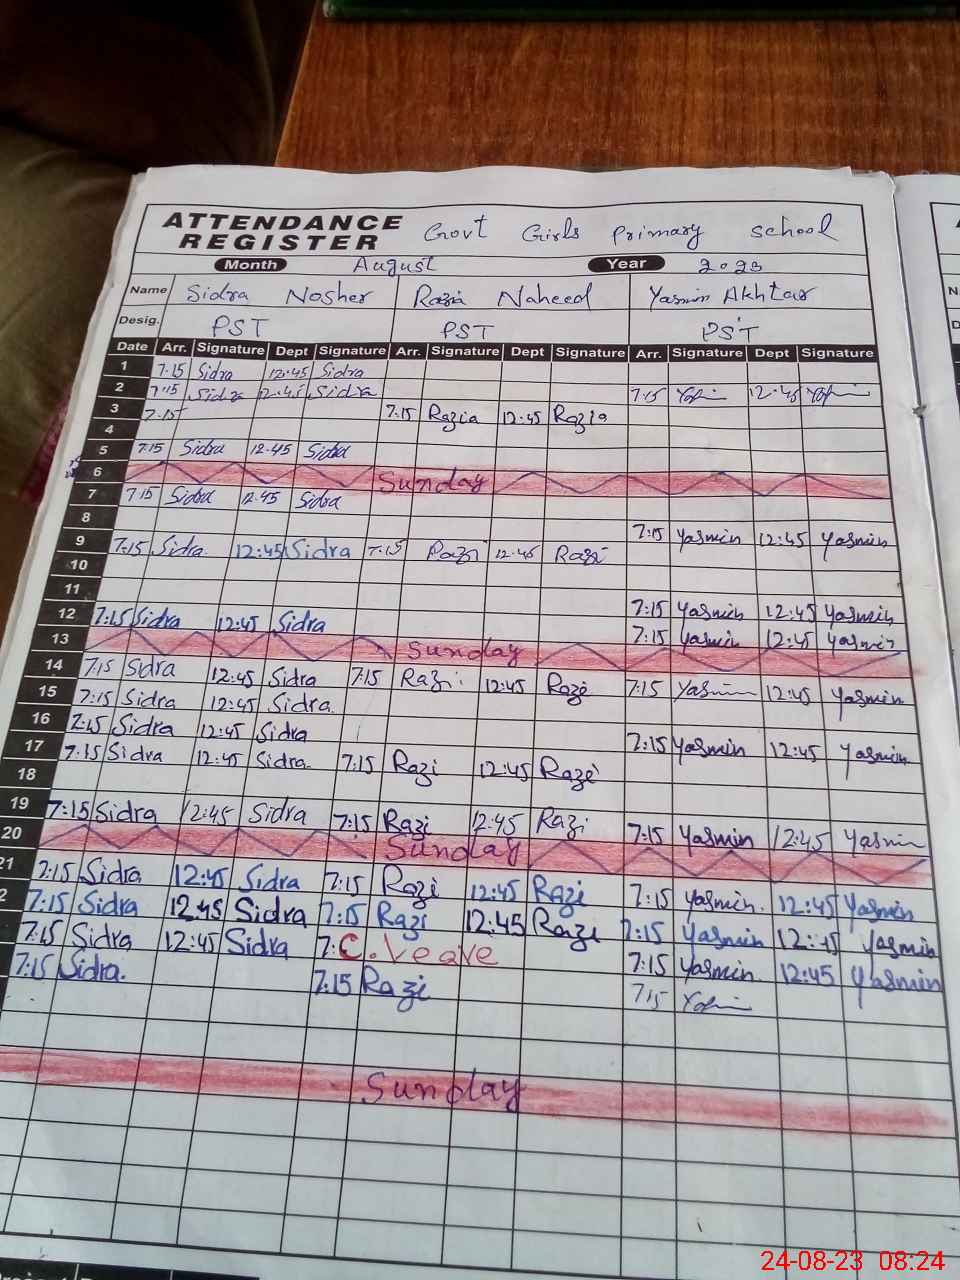 ATTENDANCE REGISTER Govt Girls Primary School
Month August Year 2023
Name Sidra Nosher Razia Naheed Yasmin Akhtar
Desig. PST PST PST
Date Arr. Signature Dept Signature Arr. Signature Dept Signature Arr. Signature Dept Signature
1 7:15 Sidra 12:45 Sidra
2 7:15 Sidra 12:45 Sidra 7:15 12:45
3 7:15 7:15 Razia 12:45 Razia
4
5 7:15 Sidra 12:45 Sidra
6 Sunday
7 7:15 Sidra 12:45 Sidra
8 7:15 Yasmin 12:45 Yasmin
9 7:15 Sidra 12:45 Sidra 7:15 Razi 12:45 Razi
10
11 7:15 Yasmin 12:45 Yasmin
12 7:15 Sidra 12:45 Sidra 7:15 Yasmin 12:45 Yasmin
13 Sunday
14 7:15 Sidra 12:45 Sidra 7:15 Razi 12:45 Razi 7:15 Yasmin 12:45 Yasmin
15 7:15 Sidra 12:45 Sidra
16 7:15 Sidra 12:45 Sidra 7:15 Yasmin 12:45 Yasmin
17 7:15 Sidra 12:45 Sidra 7:15 Razi 12:45 Razi
18
19 7:15 Sidra 12:45 Sidra 7:15 Razi 12:45 Razi 7:15 Yasmin 12:45 Yasmin
20 Sunday
21 7:15 Sidra 12:45 Sidra 7:15 Razi 12:45 Razi 7:15 Yasmin 12:45 Yasmin
2 7:15 Sidra 12:45 Sidra 7:15 Razi 12:45 Razi 7:15 Yasmin 12:45 Yasmin
7:15 Sidra 12:45 Sidra 7: C. Veave 7:15 Yasmin 12:45 Yasmin
7:15 Sidra. 7:15 Razi 7:15
Sunday
24-08-23 08:24